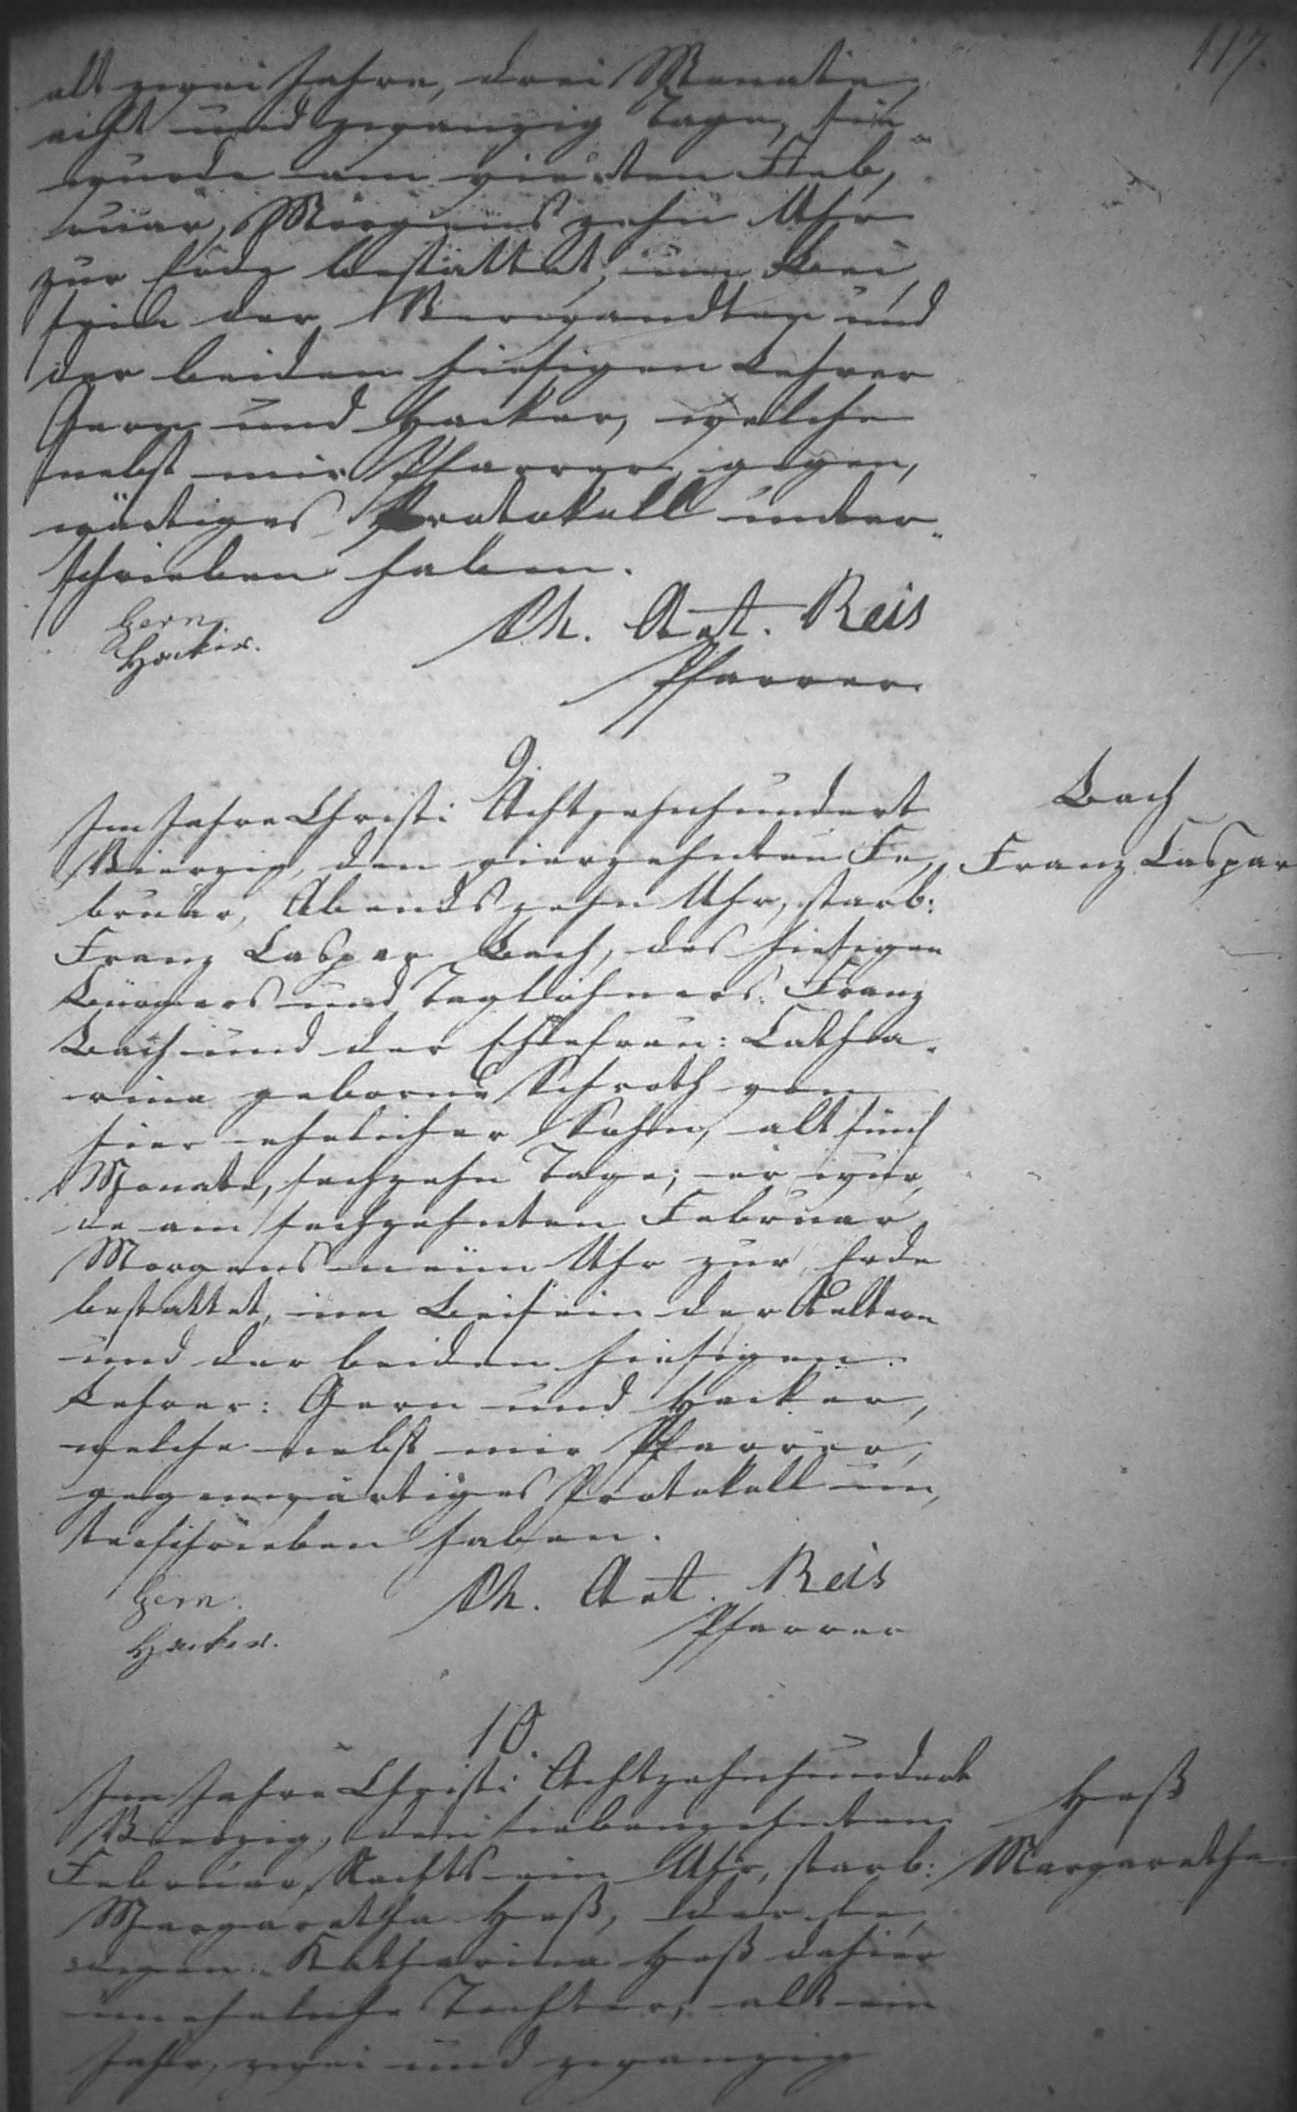 117.
alt zwei Jahre, drei Monate,
acht und zwanzig Tage, sie
wurde am vierten Feb,
ruar, Morgens zehn Uhr
zur Erde bestattet, im Bei,
sein der Verwandten und
der beiden hiesigen Lehrer
Gern und Hacker, welche
nebst mir Pfarrer, gegen,
wärtiges Protokoll unter„
schrieben haben.
Gern
Hacker.
Ph. Ant. Reis
Pfarrer.
9.
Im Jahre Christi Achtzehnhundert
Vierzig, den vierzehnten Fe,
bruar, Abends zehn Uhr, starb:
Franz Caspar Bach, des hiesigen
Bürgers und Taglöhners: Franz
Bach und der Ehefrau: Catha„
rina geborne Schroth von
hier ehelicher Sohn, alt fünf
Monate, sechzehn Tage; er wur,
de am sechzehnten Februar,
Morgens neün Uhr zur Erde
bestattet, im Beisein der Aeltern
und der beiden hiesigen
Lehrer: Gern und Hacker,
welche nebst mir Pfarrer,
gegenwärtiges Protokoll un,
terschrieben haben.
Gern.
Hacker.
Ph. Ant. Reis
Pfarrer
Bach
Franz Caspar
10.
Im Jahre Christi Achtzehnhundert
Vierzig, den siebenzehnten
Februar, Nachts ein Uhr, starb:
Margaretha Heß, der le,
digen Katharina Heß dahier
uneheliche Tochter, alt ein
Jahr, zwei und zwanzig
Heß
Margaretha